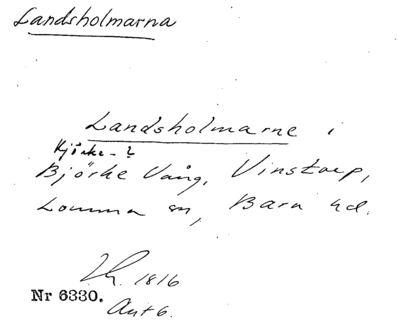 Landsholmarna
Landsholmarne i
Kjörke - ?
Björke Vång, Vinstorp,
Lomma sn, Bara hd.
1816
Nr 6330.
Akt 6.